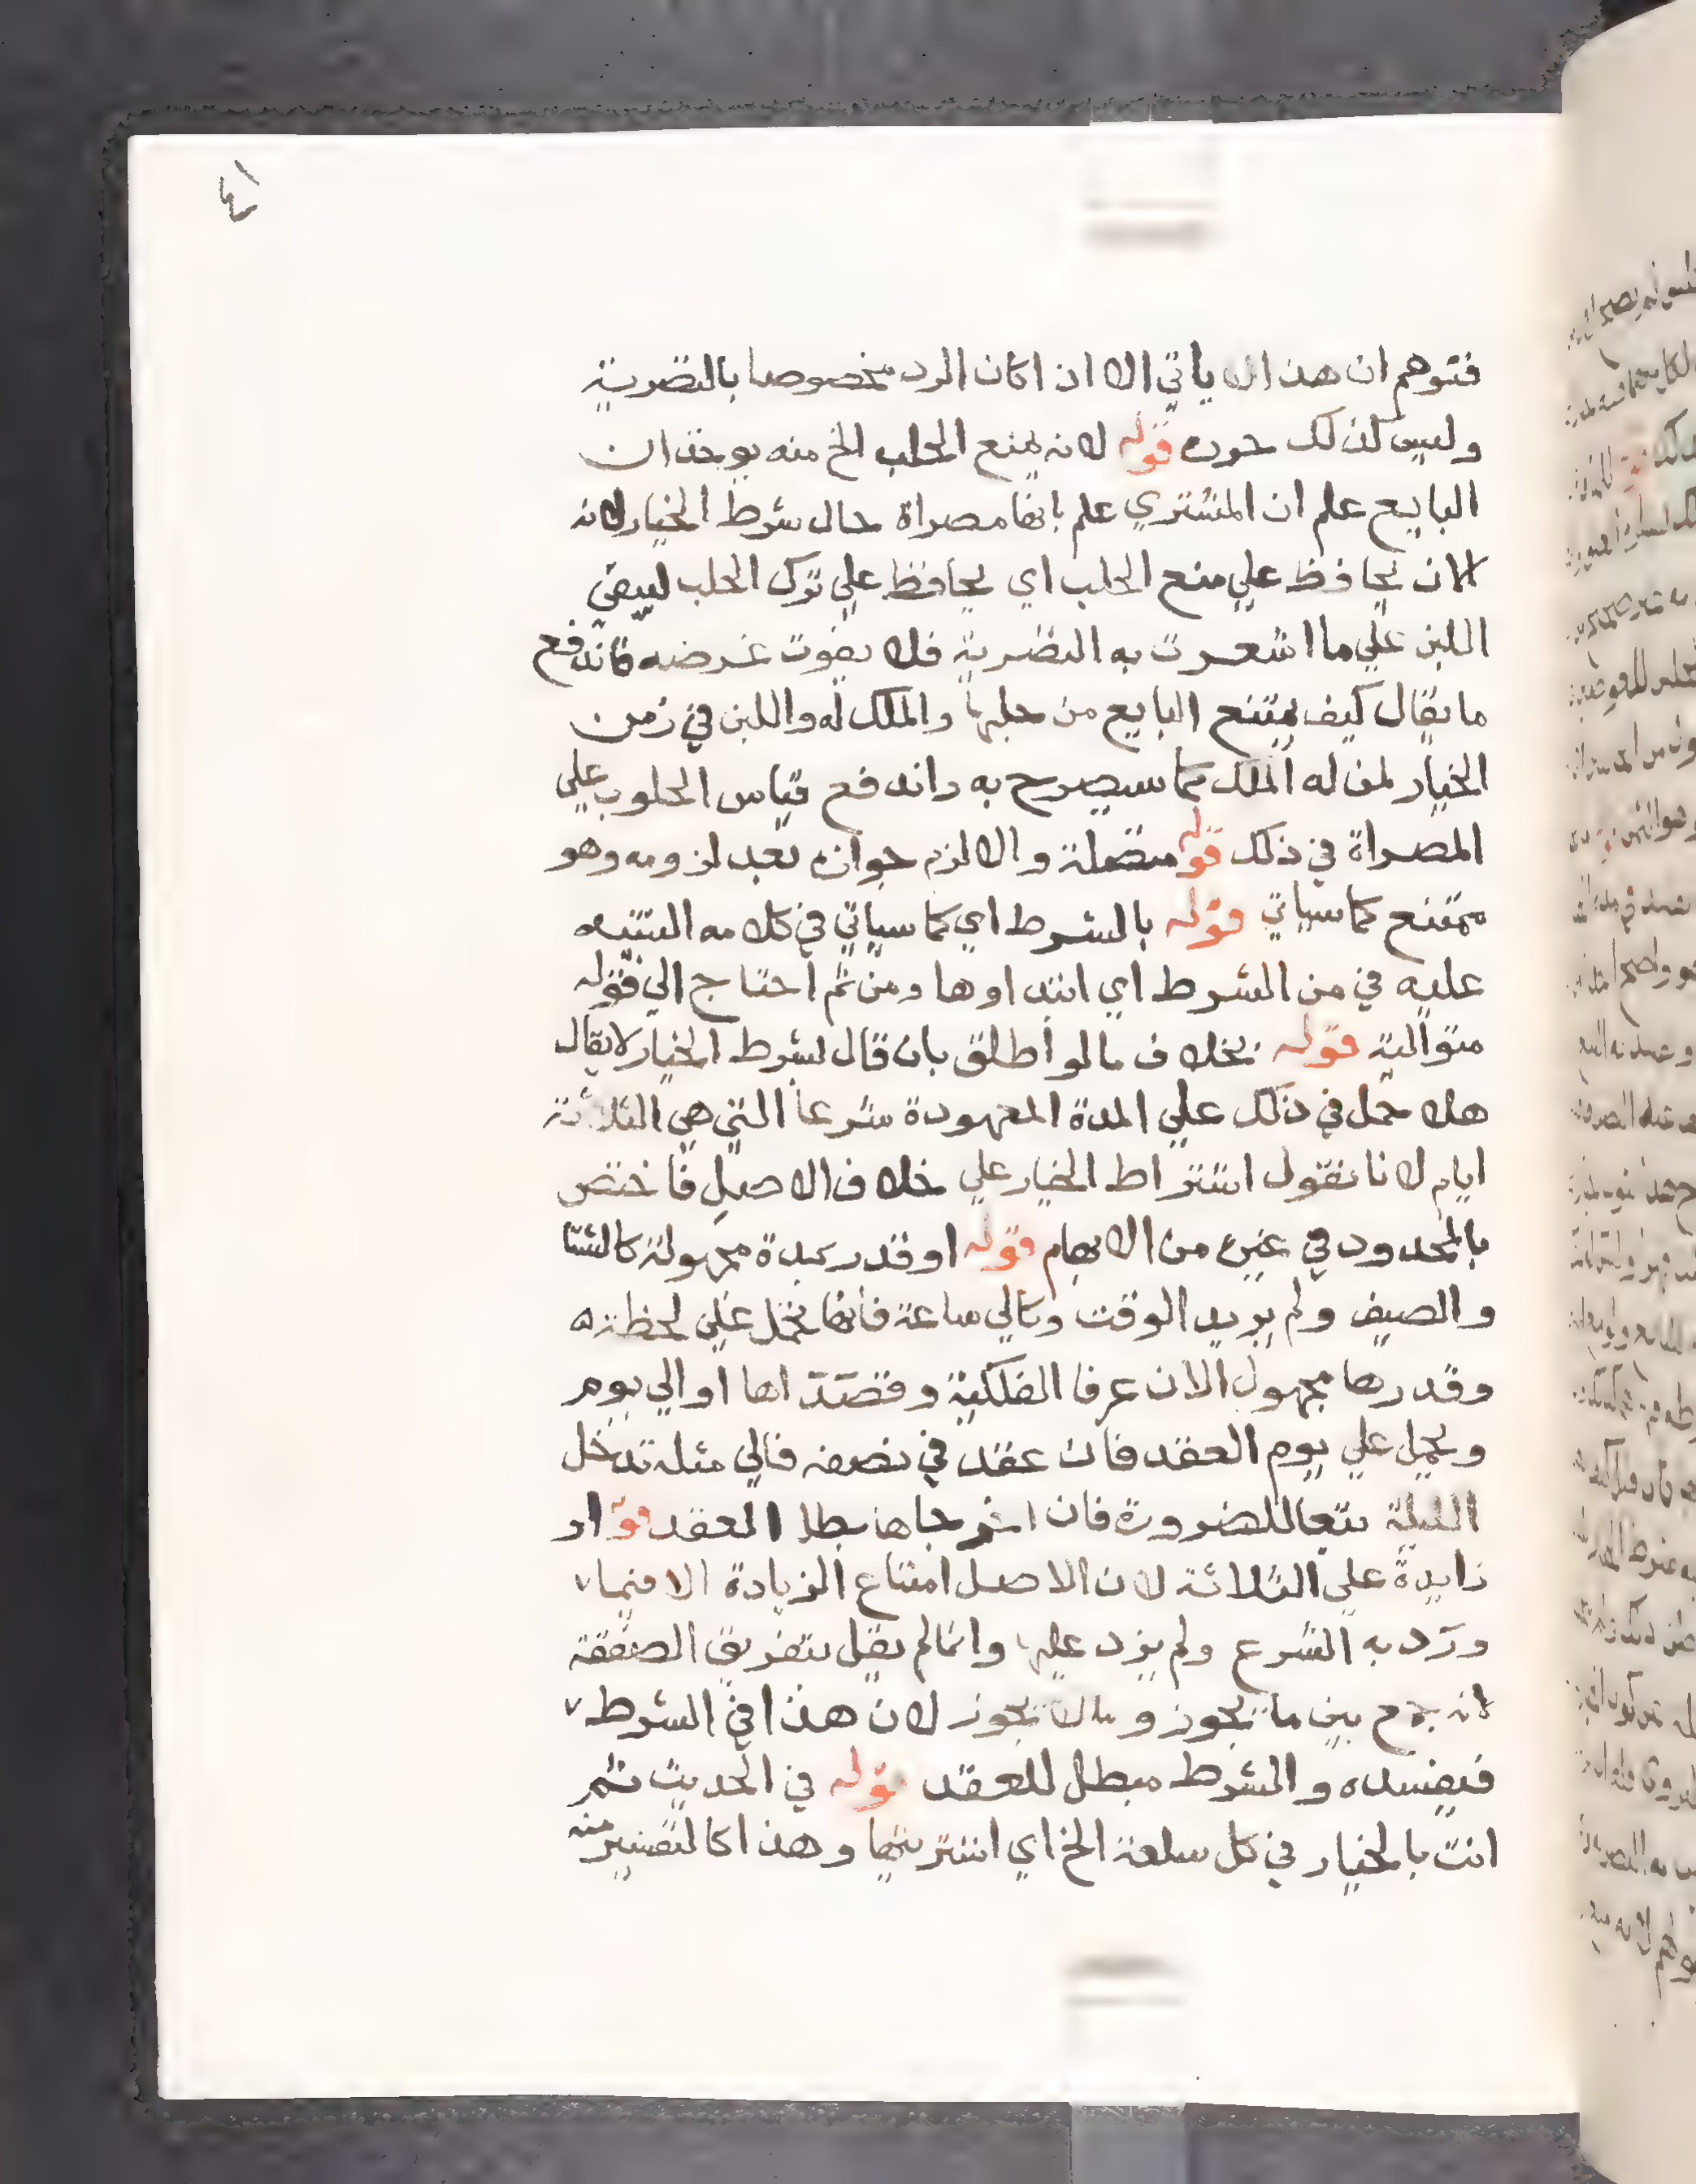 ٤١
فتوهم ان هذا لا ياتي الا اذا كان الرد مخصوصا بالتصرية
وليس كذلك حوره قوله لانه يمنع الحلب الخ منه يوخذ ان
البايع علم ان المشتري علم بانها مصراة حال شرط الخيار لانه
لان يحافظ علي منع الحلب اي يحافظ علي ترك الحلب ليبقي
اللبن علي ما اشعرت به التصرية فلا يفوت غرضه فاندفع
ما يقال كيف يمتنع البايع من حلبها والملك له واللبن في زمن
الخيار لمن له الملك كما سيصرح به واندفع قياس المحلوب علي
المصراة في ذلك قوله متصلة والا لزم جوازه بعد لزومه وهو
ممتنع كما سياتي قوله بالشرط اي كما سياتي في كلامه التنبيه
عليه في من الشرط اي ابتداوها ومن ثم احتاج الي قوله
متوالية قوله بخلاف ما لو اطلق بان قال بشرط الخيار لا يقال
هلا حمل في ذلك علي المدة المعهودة شرعا التي هي الثلاثة
ايام لانا نقول اشتراط الخيار علي خلاف الاصل فاختص
بالمحدود في غيره من الابهام قوله او قدر بمدة مجهولة كالشتا
والصيف ولم يريد الوقت وكالي ساعة فانها تحمل علي لحظة
وقدرها مجهول الا ان عرفا الفلكية وقصداها او الي يوم
ويحمل علي يوم العقد فان عقد في نصفه فالي مثله تدخل
الليلة تبعا للضرورة فان اخرجاها بطل العقد قو او
زايدة علي الثلاثة لان الاصل امتناع الزيادة الا فيما
ورد به الشرع ولم يزد عليها وانما لم يقل بتفريق الصفقة
لانه جمع بين ما يجوز وما لا يجوز لان هذا في الشرط
فيفسده والشرط مبطل للعقد قوله في الحديث ثم
انت بالخيار في كل سلعة الخ اي اشتريتها وهذا كالتفسير منه